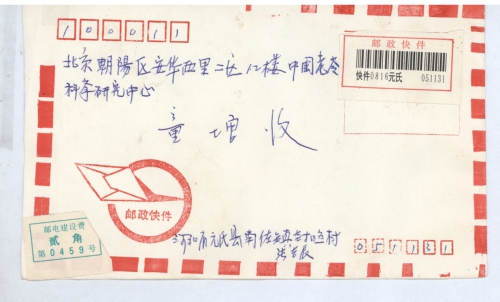 100011
邮政快件
快件0816元氏 051131
北京朝陽区安华西里二区12楼中国老令
科学研究中心
童 塘 收
邮政快件
邮电建设费
贰角
第0459号
河北省元氏县南佐镇
051131